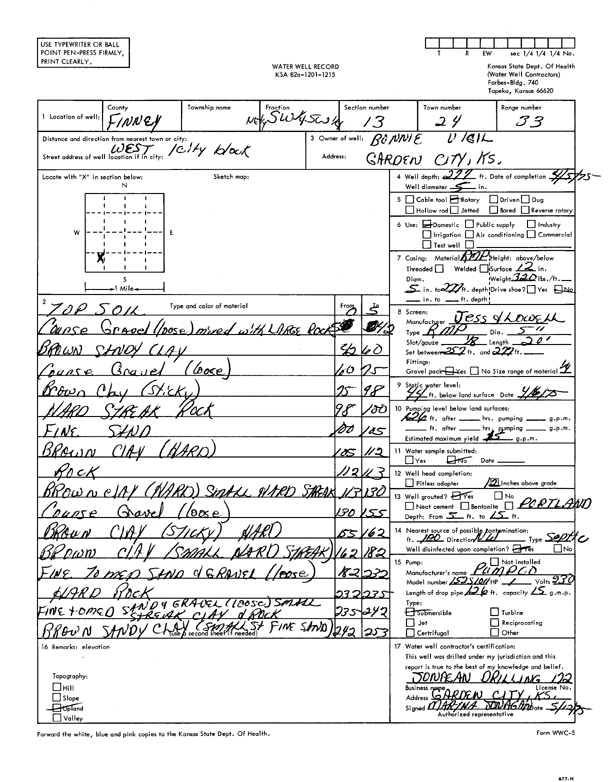 USE TYPEWRITER OR BALL
POINT PEN-PRESS FIRMLY,
PRINT CLEARLY.
T R EW sec 1/4 1/4 1/4 No.
WATER WELL RECORD
KSA 82a-1201-1215
Kansas State Dept. Of Health
(Water Well Contractors)
Forbes-Bldg. 740
Topeka, Kansas 66620
1 Location of well:
County
FINNEY
Township name
Fraction
SW¼ SW¼
Section number
13
Town number
24
Range number
33
Distance and direction from nearest town or city:
WEST 1 City block
Street address of well location if in city:
3 Owner of well: BONNIE VIGIL
Address: GARDEN CITY, KS.
Locate with "X" in section below:
Sketch map:
N
W
E
S
X
1 Mile
4 Well depth: 277 ft. Date of completion 4/5/75
Well diameter 5 in.
5 Cable tool Rotary Driven Dug
Hollow rod Jetted Bored Reverse rotary
6 Use: Domestic Public supply Industry
Irrigation Air conditioning Commercial
Test well
7 Casing: Material RMP Height: above/below
Threaded Welded Surface 12 in.
Diam. Weight 320 lbs./ft.
5 in. to 277 ft. depth Drive shoe? Yes No
in. to ft. depth
2 Type and color of material From To
TOP SOIL 0 5
Course Gravel (loose) mixed with LARGE Rock 5 42
BROWN SANDY CLAY 42 60
Course Gravel (loose) 60 75
Brown Clay (sticky) 75 98
HARD STREAK Rock 98 100
FINE SAND 100 105
BROWN CLAY (HARD) 105 112
ROCK 112 113
BROWN CLAY (HARD) SMALL HARD STREAK 113 130
Course Gravel (loose) 130 155
BROWN CLAY (STICKY) HARD 155 162
BROWN CLAY (SMALL HARD STREAK) 162 182
FINE TO MED SAND & GRAVEL (loose) 182 232
HARD ROCK 232 235
FINE TO MED SAND & GRAVEL (loose) SMALL
STREAK CLAY & ROCK 235 242
BROWN SANDY CLAY (SMALL ST FINE SAND) 242 253
(use a second sheet if needed)
8 Screen:
Manufacturer Jess & Lowell
Type RMP Dia. 5"
Slot/gauze 1/8 Length 20'
Set between 257 ft. and 277 ft.
Fittings:
Gravel pack Yes No Size range of material 1/4
9 Static water level:
44 ft. below land surface Date
10 Pumping level below land surfaces:
ft. after hrs. pumping g.p.m.
ft. after hrs. pumping g.p.m.
Estimated maximum yield g.p.m.
11 Water sample submitted:
Yes No Date
12 Well head completion:
Pitless adapter Inches above grade
13 Well grouted? Yes No
Neat cement Bentonite PORTLAND
Depth: From 5 ft. to 15 ft.
14 Nearest source of possible contamination:
ft. 100 Direction NW Type Septic
Well disinfected upon completion? Yes No
15 Pump: Not installed
Manufacturer's name PUMPCO
Model number HP 1 Volts 230
Length of drop pipe 126 ft. capacity 15 g.m.p.
Type:
Submersible Turbine
Jet Reciprocating
Certrifugal Other
16 Remarks: elevation
Topography:
Hill
Slope
Upland
Valley
17 Water well contractor's certification:
This well was drilled under my jurisdiction and this
report is true to the best of my knowledge and belief.
DRILLING 122
Business name License No.
Address GARDEN CITY, KS.
Signed Date 5/12/75
Authorized representative
Forward the white, blue and pink copies to the Kansas State Dept. Of Health.
Form WWC-5
677-H